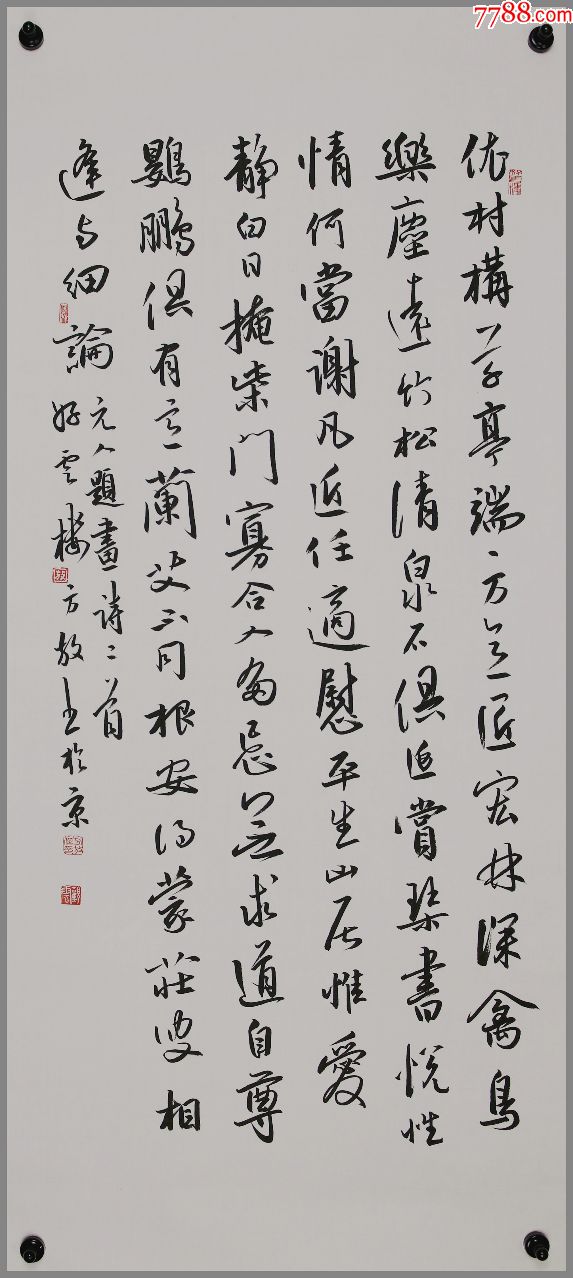 7788.com
依村構草亭端方意匠宏林深禽鳥
樂塵遠竹松清泉石俱延賞琴書悅性
情何當謝凡近任適慰平生山居惟愛
靜白日掩柴門寡合人多忌無求道自尊
鷃鵬俱有意蘭艾不同根安得蒙莊叟相
逢与細論
元人題畫詩二首
好雲樓方於京